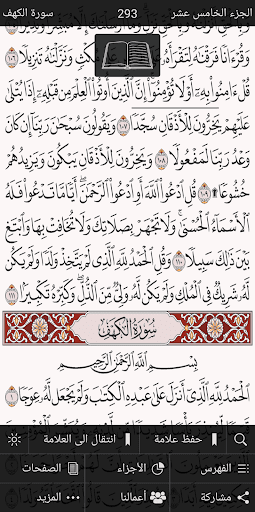 الجزء الخامس عشر 293 سورة الكهف
وَقُرْءَانًا فَرَقْنَٰهُ لِتَقْرَأَهُۥ عَلَى ٱلنَّاسِ عَلَىٰ مُكْثٍ وَنَزَّلْنَٰهُ تَنزِيلًا ١٠٦
قُلْ ءَامِنُوا۟ بِهِۦٓ أَوْ لَا تُؤْمِنُوٓا۟ إِنَّ ٱلَّذِينَ أُوتُوا۟ ٱلْعِلْمَ مِن قَبْلِهِۦٓ إِذَا يُتْلَىٰ
عَلَيْهِمْ يَخِرُّونَ لِلْأَذْقَانِ سُجَّدًا ١٠٧ وَيَقُولُونَ سُبْحَٰنَ رَبِّنَآ إِن كَانَ
وَعْدُ رَبِّنَا لَمَفْعُولًا ١٠٨ وَيَخِرُّونَ لِلْأَذْقَانِ يَبْكُونَ وَيَزِيدُهُمْ
خُشُوعًا ١٠٩ قُلِ ٱدْعُوا۟ ٱللَّهَ أَوِ ٱدْعُوا۟ ٱلرَّحْمَٰنَ أَيًّا مَّا تَدْعُوا۟ فَلَهُ
ٱلْأَسْمَآءُ ٱلْحُسْنَىٰ وَلَا تَجْهَرْ بِصَلَاتِكَ وَلَا تُخَافِتْ بِهَا وَٱبْتَغِ
بَيْنَ ذَٰلِكَ سَبِيلًا ١١٠ وَقُلِ ٱلْحَمْدُ لِلَّهِ ٱلَّذِى لَمْ يَتَّخِذْ وَلَدًا وَلَمْ يَكُن
لَّهُۥ شَرِيكٌ فِى ٱلْمُلْكِ وَلَمْ يَكُن لَّهُۥ وَلِىٌّ مِّنَ ٱلذُّلِّ وَكَبِّرْهُ تَكْبِيرًۢا ١١١
سُورَةُ الكَهْفِ
بِسْمِ ٱللَّهِ ٱلرَّحْمَٰنِ ٱلرَّحِيمِ
ٱلْحَمْدُ لِلَّهِ ٱلَّذِىٓ أَنزَلَ عَلَىٰ عَبْدِهِ ٱلْكِتَٰبَ وَلَمْ يَجْعَل لَّهُۥ عِوَجَا ١
حفظ علامة انتقال الى العلامة
الفهرس الأجزاء الصفحات
مشاركة أعمالنا المزيد